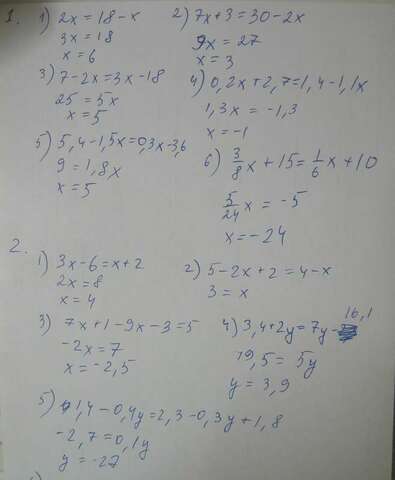 1. 1) 2x = 18 - x 2) 7x + 3 = 30 - 2x
3x = 18 9x = 27
x = 6 x = 3
3) 7 - 2x = 3x - 18 4) 0,2x + 2,7 = 1,4 - 1,1x
25 = 5x 1,3x = -1,3
x = 5 x = -1
5) 5,4 - 1,5x = 0,3x - 3,6 6) 3/8 x + 15 = 1/6 x + 10
9 = 1,8x 5/24 x = -5
x = 5 x = -24
2. 1) 3x - 6 = x + 2 2) 5 - 2x + 2 = 4 - x
2x = 8 3 = x
x = 4
3) 7x + 1 - 9x - 3 = 5 4) 3,4 + 2y = 7y - 16,1
-2x = 7 19,5 = 5y
x = -2,5 y = 3,9
5) 1,4 - 0,4y = 2,3 - 0,3y + 1,8
-2,7 = 0,1y
y = -27